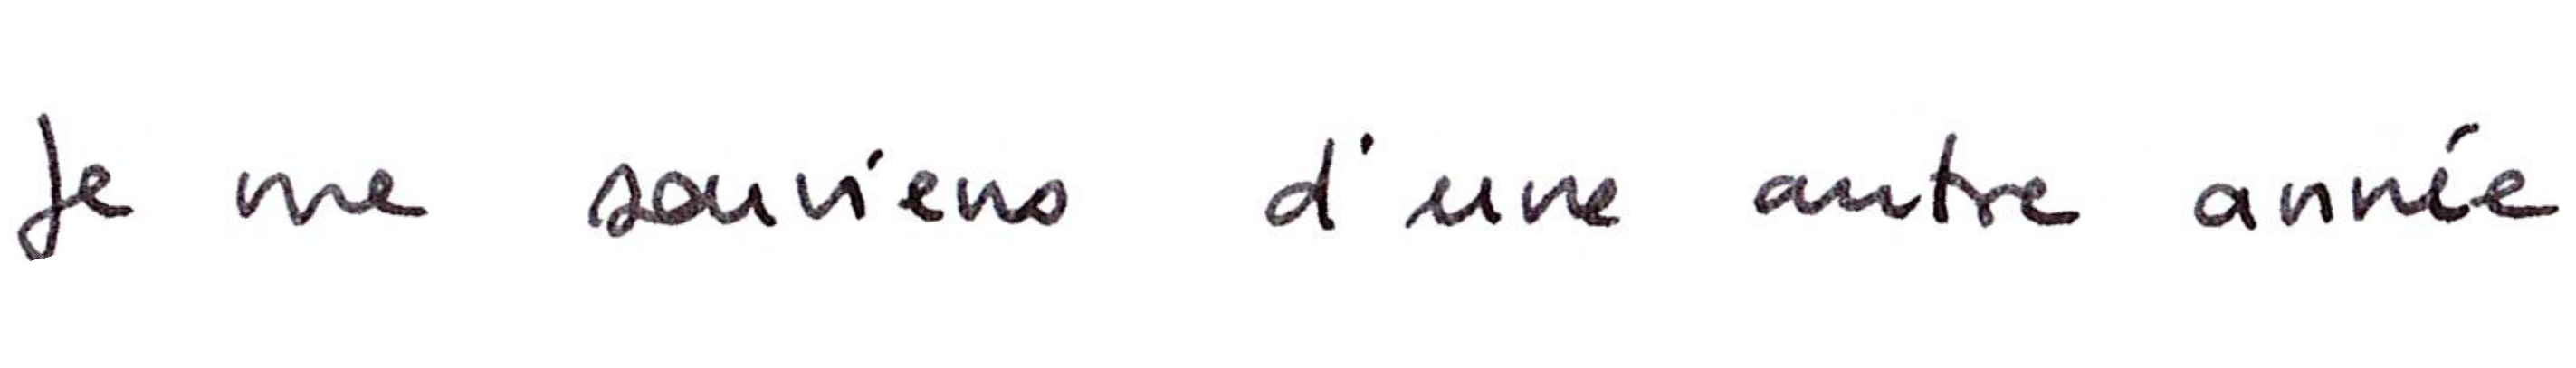 Je me souviens d'une autre année